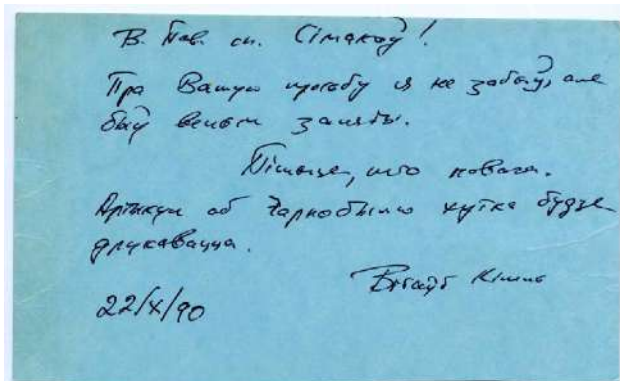 В. Пав. сп. Сімакоў!
Пра Вашую просьбу я не забыў, але
быў вельмі заняты.
Пішыце, што новага.
Артыкул аб Чарнобылю хутка будзе
друкавацца.
Вітаўт Кіпель
22/X/90